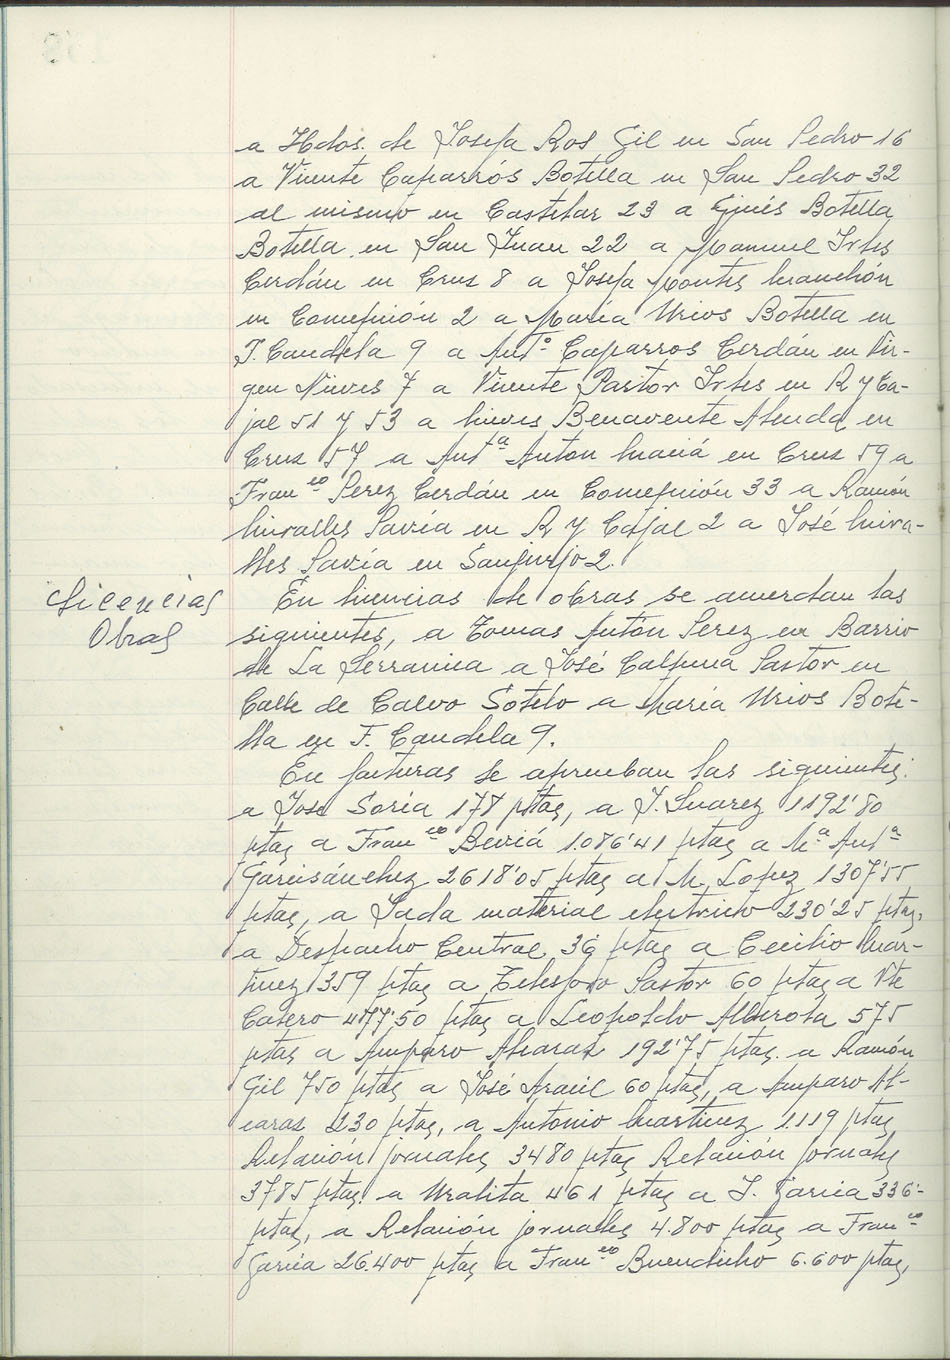 a Hdos. de Josefa Ros Gil en San Pedro 16
a Vicente Caparrós Botella en San Pedro 32
al mismo en Castelar 23 a Ginés Botella
Botella en San Juan 22 a Manuel Irles
Cerdán en Cruz 8 a Josefa Montes Manchón
en Concepción 2 a María Urios Botella en
F. Candela 9 a Antº Caparros Cerdán en Vir-
gen Nieves 7 a Vicente Pastor Irles en R y Ca-
jal 51 y 53 a Nieves Benavente en
Cruz 57 a Antª Anton Maciá en Cruz 59 a
Franco Perez Cerdán en Concepción 33 a Ramón
Miralles Pavía en R y Cajal 2 a José Mira-
lles Pavía en Sanjurjo 2.
Licencias
Obras
En licencias de obras se acuerdan las
siguientes, a Tomas Antón Perez en Barrio
de La Serranica a José Calpena Pastor en
Calle de Calvo Sotelo a María Urios Bote-
lla en F. Candela 9.
En facturas se aprueban las siguientes:
a Jose Soria 178 ptas, a J. Suarez 1192'80
ptas a Franco Beviá 1.086'41 ptas a Mª Antª
Garcisánchez 2618'05 ptas a M. Lopez 1307'55
ptas, a material electrico 230'25 ptas,
a Despacho Central 36 ptas a Cecilio Mar-
tinez 1359 ptas a Telesforo Pastor 60 ptas a Vte
Casero 477'50 ptas a Leopoldo Alberola 575
ptas a Amparo Alcaraz 192'75 ptas. a Ramón
Gil 750 ptas a José Aracil 60 ptas, a Amparo Al-
caras 230 ptas, a Antonio Martinez 1.119 ptas
Relación jornales 3480 ptas Relación jornales
3785 ptas. a Uralita 461 ptas a J. Garcia 336'-
ptas, a Relación jornales 4.800 ptas a Franco
Garcia 26.400 ptas a Franco Buendicho 6.600 ptas,